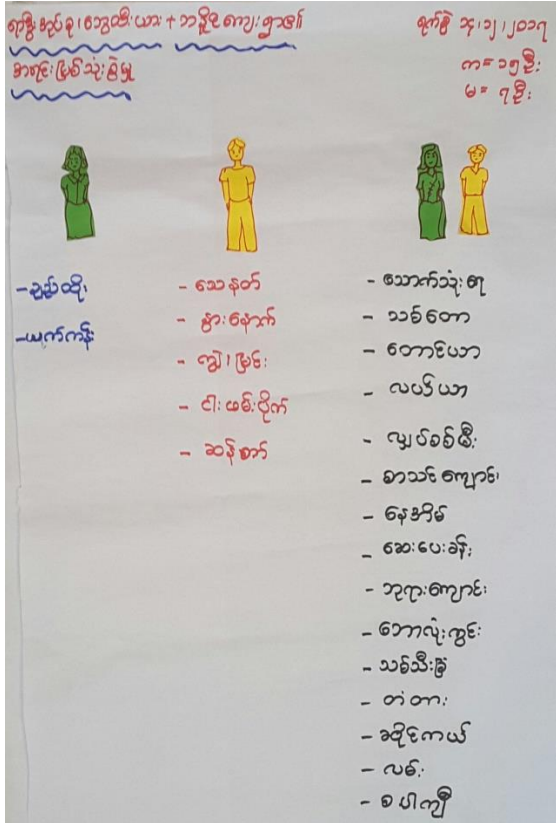 ရက်စွဲ ၁၃၊၁၂၊၂၀၁၇
အရင်းမြစ်သုံးစွဲမှု
က = ၁၅ ဦး
မ = ၇ ဦး
- ချည်ထိုး
- ယက်ကန်း
- သေနတ်
- နွားနောက်
- ကျွဲ၊ မြင်း
- ငါးဖမ်းပိုက်
- ဆန်စက်
- သောက်သုံးရေ
- သစ်တော
- တောင်ယာ
- လယ်ယာ
- လျှပ်စစ်မီး
- စာသင်ကျောင်း
- နေအိမ်
- ဆေးပေးခန်း
- ဘုရားကျောင်း
- ဘောလုံးကွင်း
- သစ်သီးခြံ
- တံတား
- ဆိုင်ကယ်
- လမ်း
- စပါးကျီ